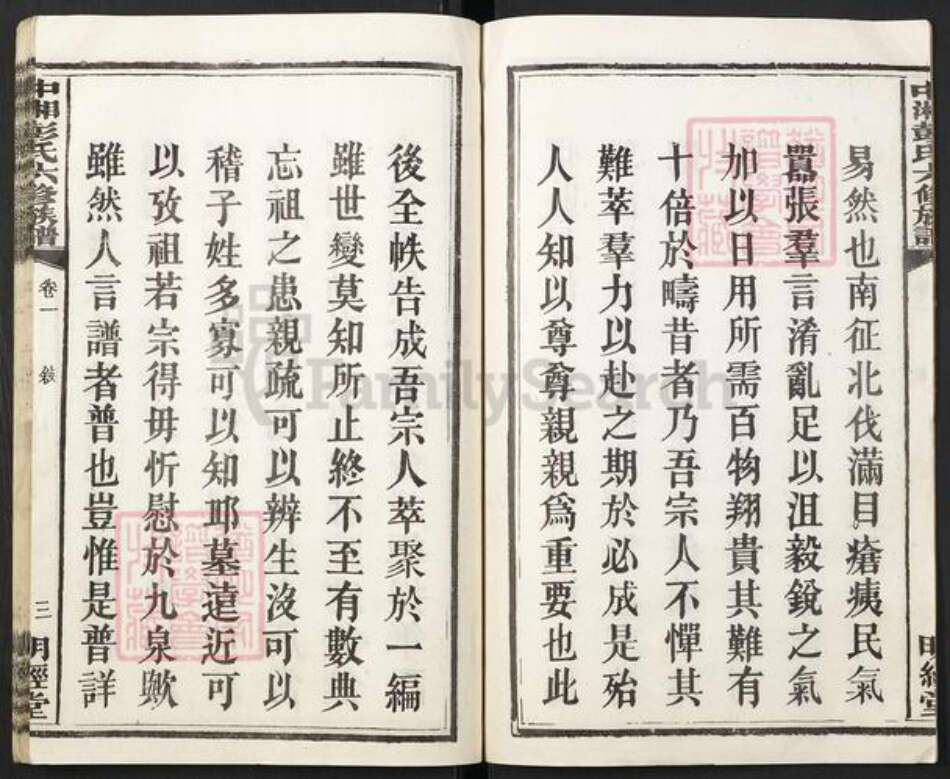 中湘彭氏六修族譜
明經堂
易然也南征北伐滿目瘡痍民氣
囂張羣言淆亂足以沮毅銳之氣
加以日用所需百物翔貴其難有
十倍於疇昔者乃吾宗人不憚其
難萃羣力以赴之期於必成是殆
人人知以尊尊親親爲重要也此
後全帙告成吾宗人萃聚於一編
雖世變莫知所止終不至有數典
忘祖之患親疏可以辨生沒可以
稽子姓多寡可以知耶墓遠近可
以攷祖若宗得毋忻慰於九泉歟
雖然人言譜者普也豈惟是普詳
中湘彭氏六修族譜
卷一
三
明經堂
FamilySearch